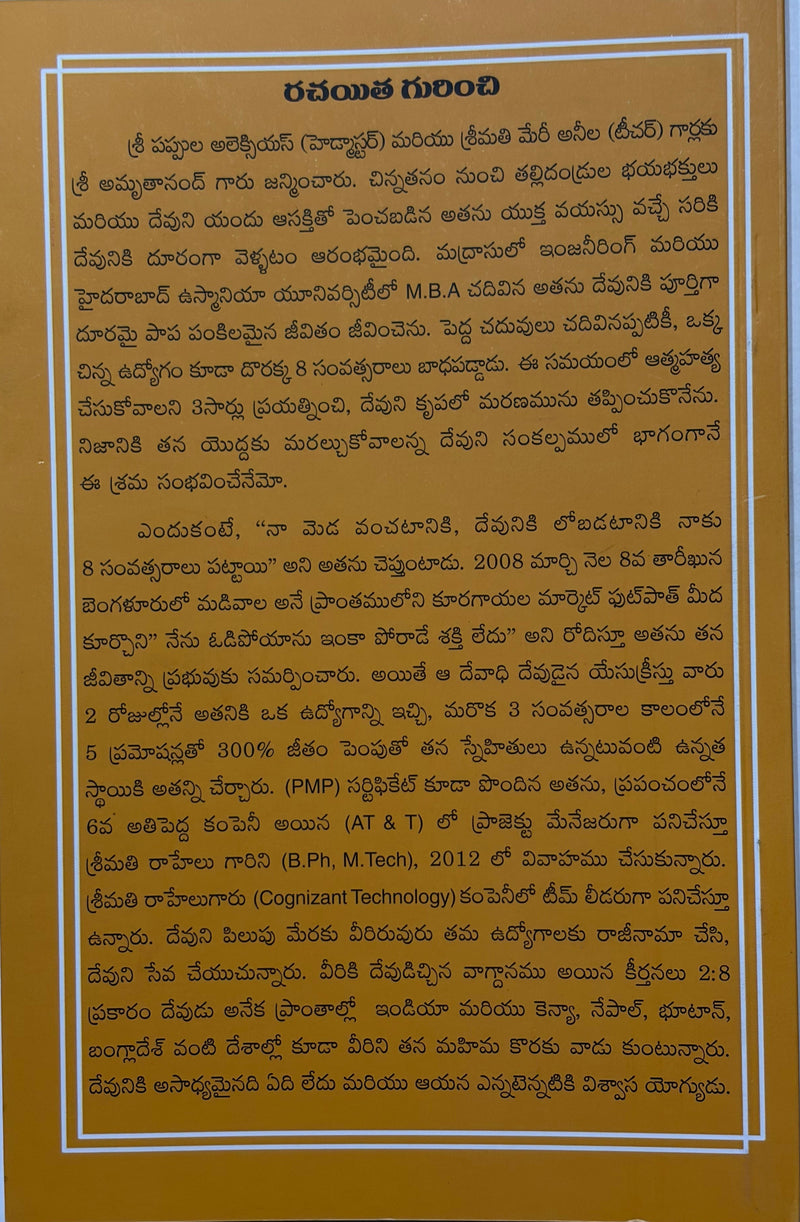 రచయిత గురించి
శ్రీ పప్పుల అలెక్సియస్ (హెడ్మాస్టర్) మరియు శ్రీమతి మేరీ అనీల (టీచర్) గార్లకు
శ్రీ అమృతానంద్ గారు జన్మించారు. చిన్నతనం నుంచి తల్లిదండ్రుల భయభక్తులు
మరియు దేవుని యందు ఆసక్తితో పెంచబడిన అతను యుక్త వయస్సు వచ్చే సరికి
దేవునికి దూరంగా వెళ్ళటం ఆరంభమైంది. మద్రాసులో ఇంజనీరింగ్ మరియు
హైదరాబాద్ ఉస్మానియా యూనివర్సిటీలో M.B.A చదివిన అతను దేవునికి పూర్తిగా
దూరమై పాప పంకిలమైన జీవితం జీవించెను. పెద్ద చదువులు చదివినప్పటికీ, ఒక్క
చిన్న ఉద్యోగం కూడా దొరక్క 8 సంవత్సరాలు బాధపడ్డాడు. ఈ సమయంలో ఆత్మహత్య
చేసుకోవాలని 3సార్లు ప్రయత్నించి, దేవుని కృపలో మరణమును తప్పించుకొనేను.
నిజానికి తన యొద్దకు మరల్చుకోవాలన్న దేవుని సంకల్పములో భాగంగానే
ఈ శ్రమ సంభవించేనేమో.
ఎందుకంటే, “నా మెడ వంచటానికి, దేవునికి లోబడటానికి నాకు
8 సంవత్సరాలు పట్టాయి” అని అతను చెప్తుంటాడు. 2008 మార్చి నెల 8వ తారీఖున
బెంగళూరులో మడివాల అనే ప్రాంతములోని కూరగాయల మార్కెట్ ఫుట్‌పాత్ మీద
కూర్చొని” నేను ఓడిపోయాను ఇంకా పోరాడే శక్తి లేదు” అని రోదిస్తూ అతను తన
జీవితాన్ని ప్రభువుకు సమర్పించారు. అయితే ఆ దేవాధి దేవుడైన యేసుక్రీస్తు వారు
2 రోజుల్లోనే అతనికి ఒక ఉద్యోగాన్ని ఇచ్చి, మరొక 3 సంవత్సరాల కాలంలోనే
5 ప్రమోషన్లతో 300% జీతం పెంపుతో తన స్నేహితులు ఉన్నటువంటి ఉన్నత
స్థాయికి అతన్ని చేర్చారు. (PMP) సర్టిఫికేట్ కూడా పొందిన అతను, ప్రపంచంలోనే
6వ అతిపెద్ద కంపెనీ అయిన (AT & T) లో ప్రాజెక్టు మేనేజరుగా పనిచేస్తూ
శ్రీమతి రాహేలు గారిని (B.Ph, M.Tech), 2012 లో వివాహము చేసుకున్నారు.
శ్రీమతి రాహేలుగారు (Cognizant Technology) కంపెనీలో టీమ్ లీడరుగా పనిచేస్తూ
ఉన్నారు. దేవుని పిలుపు మేరకు వీరిరువురు తమ ఉద్యోగాలకు రాజీనామా చేసి,
దేవుని సేవ చేయుచున్నారు. వీరికి దేవుడిచ్చిన వాగ్దానము అయిన కీర్తనలు 2:8
ప్రకారం దేవుడు అనేక ప్రాంతాల్లో ఇండియా మరియు కెన్యా, నేపాల్, భూటాన్,
బంగ్లాదేశ్ వంటి దేశాల్లో కూడా వీరిని తన మహిమ కొరకు వాడు కుంటున్నారు.
దేవునికి అసాధ్యమైనది ఏది లేదు మరియు ఆయన ఎన్నటెన్నటికి విశ్వాస యోగ్యుడు.